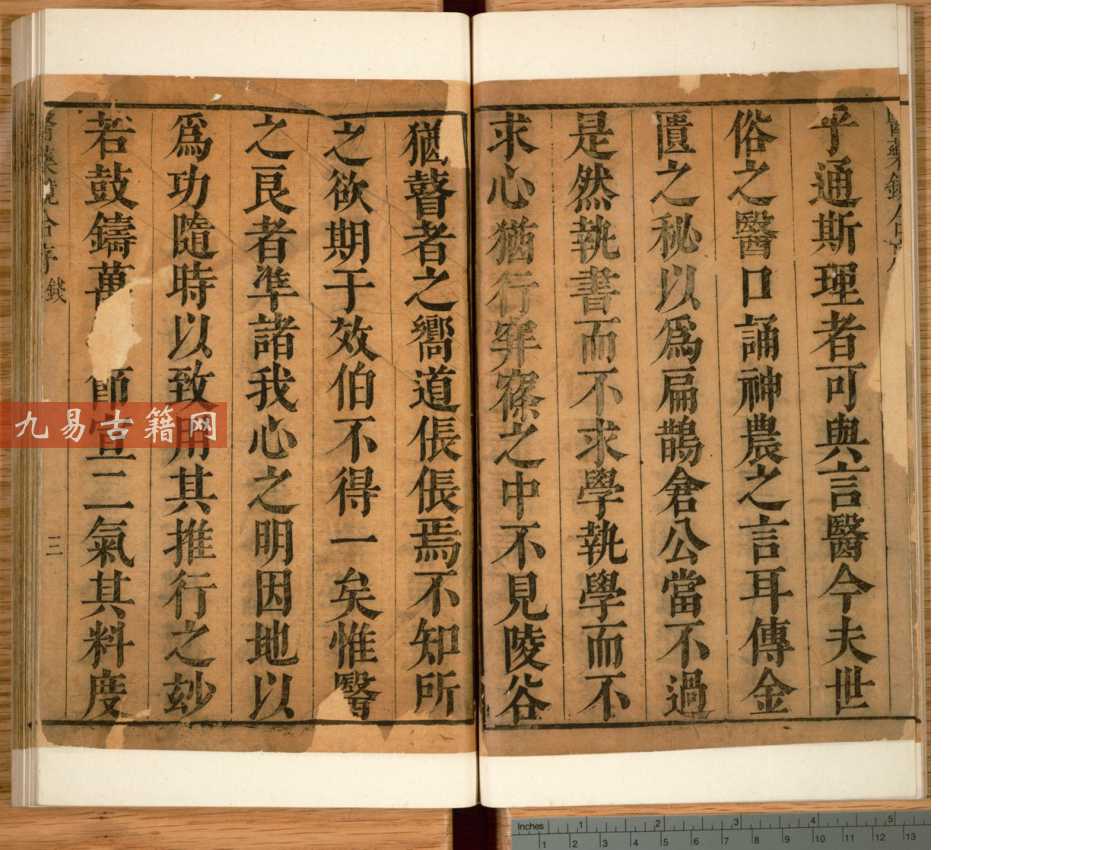 乎通斯理者可與言醫今夫世
俗之醫口誦神農之言耳傳金
匱之秘以爲扁鵲倉公當不過
是然執書而不求學執學而不
求心猶行穽窾之中不見陵谷
猶瞽者之嚮道倀倀焉不知所
之欲期于效伯不得一矣惟醫
之良者準諸我心之明因地以
爲功隨時以致用其推行之玅
若鼓鑄萬節宣二氣其料度
三
九易古籍网
Inches 1 2 3 4 5
1 2 3 4 5 6 7 8 9 10 11 12 13